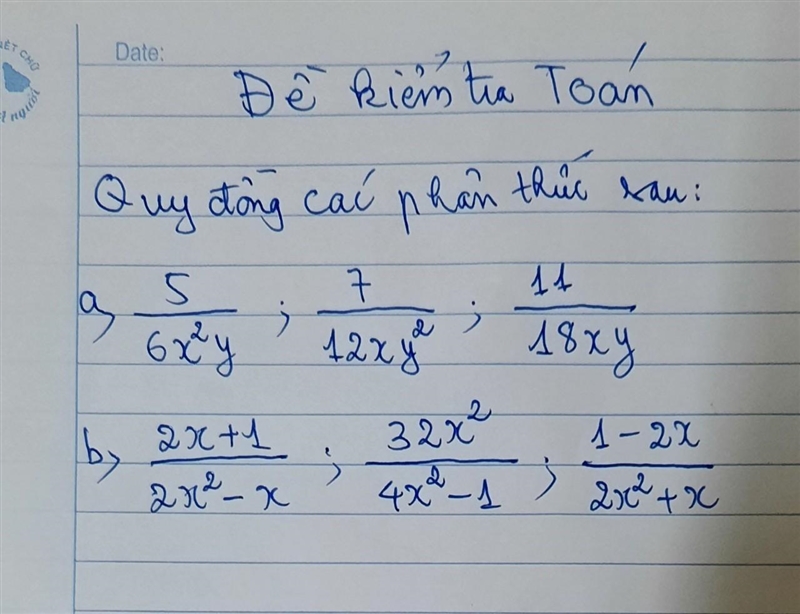 Date:
Đề kiểm tra Toán
Quy đồng các phân thức sau:
a, 5/6x²y ; 7/12xy² ; 11/18xy
b, 2x+1/2x²-x ; 32x²/4x²-1 ; 1-2x/2x²+x